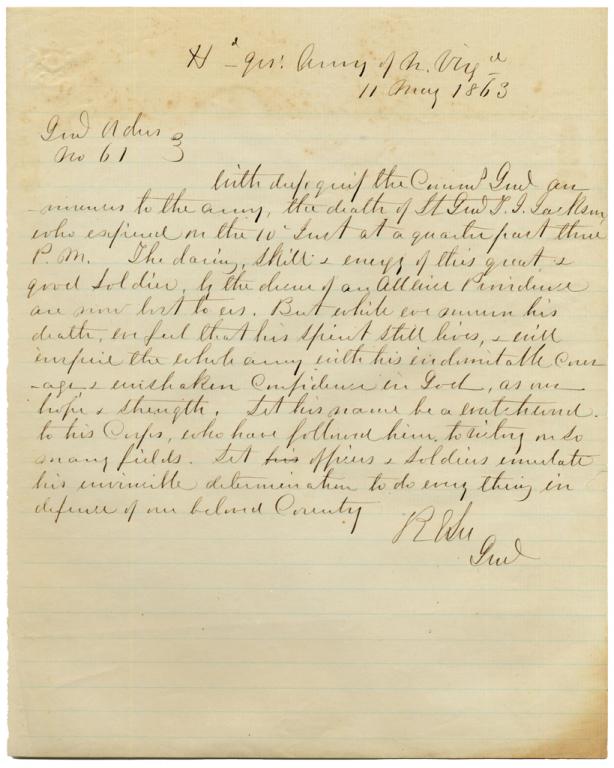 Hd qrs. Army of N. Virga
11 May 1863
Genl Orders
No 61
With deep grief the Commdg Genl an
-nounces to the army, the death of Lt Genl T. J. Jackson
who expired on the 10th Inst at a quarter past three
P. M. The daring, skill & energy of this great &
good Soldier, by the decree of an Allwise Providence
are now lost to us. But while we mourn his
death, we feel that his spirit still lives, & will
inspire the whole army with his indomitable cour
-age & unshaken Confidence in God, as our
hope & strength. Let his name be a watchword
to his Corps, who have followed him, to victory on so
many fields. Let his officers & Soldiers emulate
his invincible determination to do every thing in
defence of our beloved Country
R E Lee
Genl